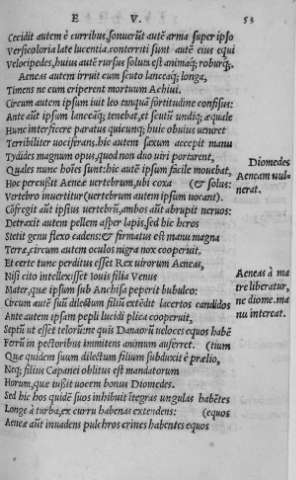 E V. 53
Cecidit autem è curribus, sonuerũt autẽ arma super ipso
Versicoloria late lucentia. conterriti sunt autẽ eius equi
Velocipedes, huius autẽ rursus soluta est animaq; roburq;.
Aeneas autem irruit cum scuto lanceaq; longa,
Timens ne cum eriperent mortuum Achiui.
Circum autem ipsum iuit leo tanquã fortitudine confisus:
Ante aũt ipsum lanceãq; tenebat, et scutũ undiq; æquale
Hunc interficere paratus quicunq; huic obuius ueniret
Terribiliter uociferans. hic autem saxum accepit manu
Tydides magnum opus, quod non duo uiri portarent,
Quales nunc hoĩes sunt: hic autẽ ipsum facile mouebat,
Hoc percussit Aeneæ uertebrum, ubi coxa (& solus:
Vertebro inuertitur (uertebrum autem ipsum uocant).
Cõfregit aũt ipsius uertebrũ, ambos aũt abrupit neruos:
Detraxit autem pellem asper lapis, sed hic heros
Stetit genu flexo cadens: & firmatus est manu magna
Terræ, circum autem oculos nigra nox cooperuit.
Et certe tunc perditus esset Rex uirorum Aeneas,
Nisi cito intellexisset Iouis filia Venus
Mater, quæ ipsum sub Anchisa peperit bubulco:
Circum autẽ suũ dilectum filiũ extẽdit lacertos candidos
Ante autem ipsam pepli lucidi plica cooperuit,
Septũ ut esset telorũ: ne quis Danaorũ ueloces equos habẽ
Ferrũ in pectoribus immitens animum auferret. (tium
Quæ quidem suum dilectum filium subduxit è prælio,
Neq; filius Capanei oblitus est mandatorum
Horum, quæ iußit uocem bonus Diomedes.
Sed hic hos quidẽ suos inhibuit ĩtegras ungulas habẽtes
Longe à turba, ex curru habenas extendens: (equos
Aeneæ aũt inuadens pulchros crines habentes equos
Diomedes
Aeneam uul=
nerat.
Aeneas à ma
tre liberatur,
ne diome. ma
nu intereat.